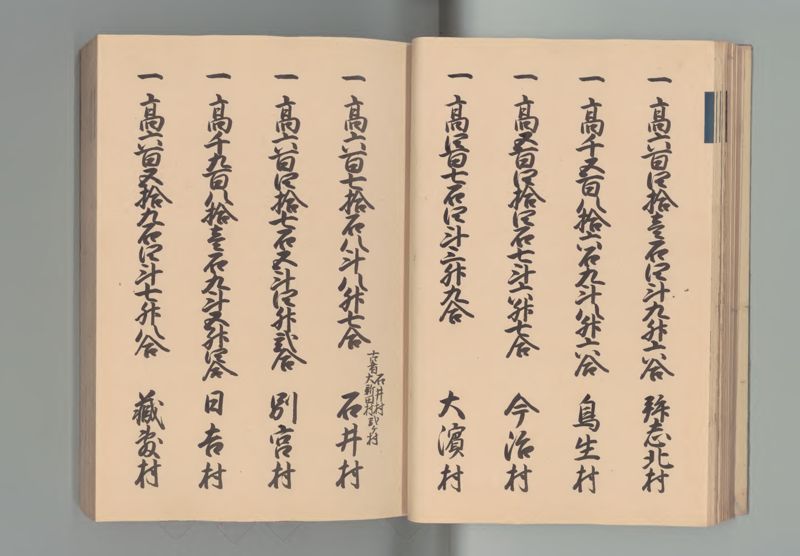 一 高六百四拾壱石四斗九升六合 弥志北村
一 高千五百八拾六石九斗八升六合 鳥生村
一 高五百四拾四石七斗六升七合 今治村
一 高四百七石四斗三升九合 大濱村
一 高六百七拾石八斗八升七合 石井村
古者石井村
大新田村弐ヶ村
一 高六百四拾七石五斗四升弐合 別宮村
一 高千九百八拾壱石九斗五升四合 日吉村
一 高六百五拾九石四斗七升八合 蔵敷村